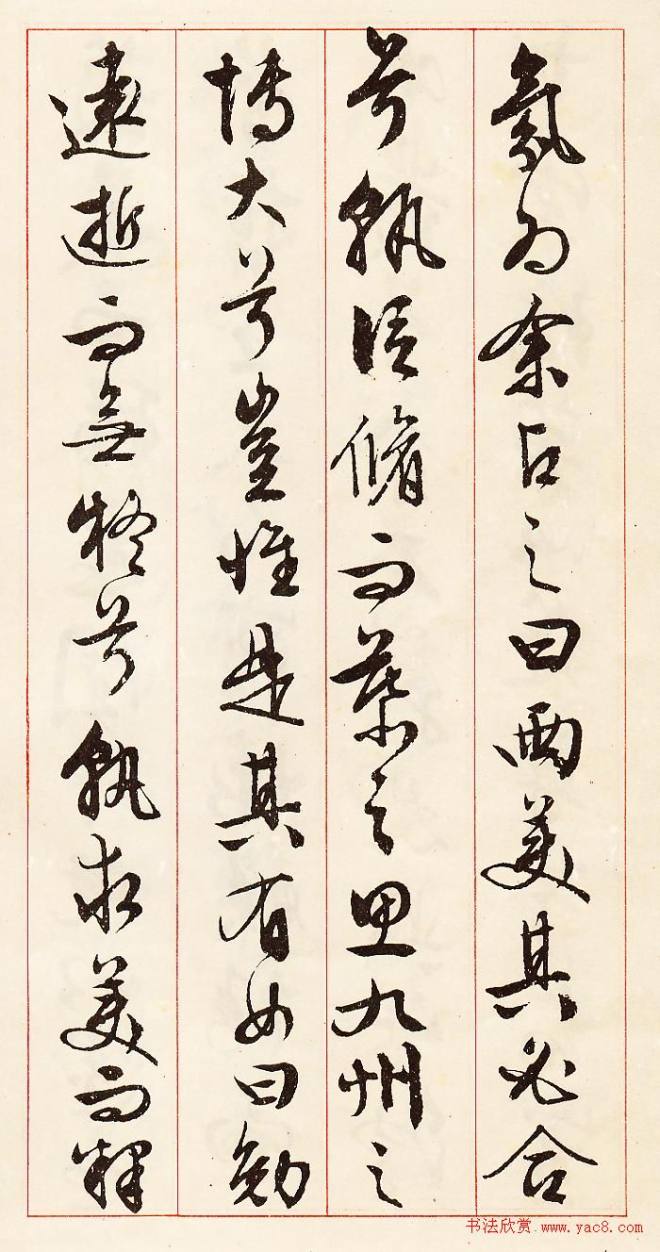 氛为余占之曰兩美其必合
兮孰信脩而慕之思九州之
博大兮豈惟是其有女曰勉
遠逝而無狐兮孰求美而釋
书法欣赏 www.yac8.com